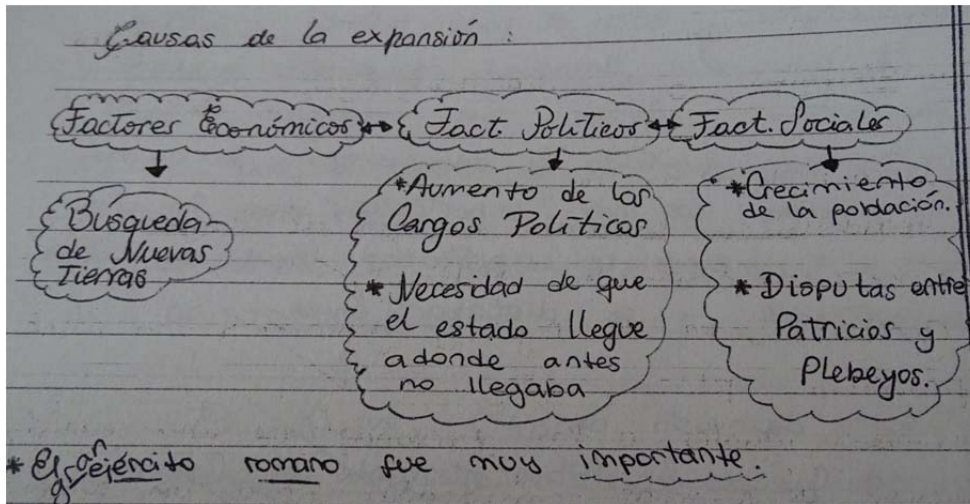 Causas de la expansión :
Factores Económicos ↔ Fact Políticos ↔ Fact. Sociales
Busqueda
de Nuevas
Tierras
*Aumento de los
Cargos Políticos
* Necesidad de que
el estado llegue
adonde antes
no llegaba
*Crecimiento
de la población.
* Disputas entre
Patricios y
Plebeyos.
* El gran ejército romano fue muy importante.